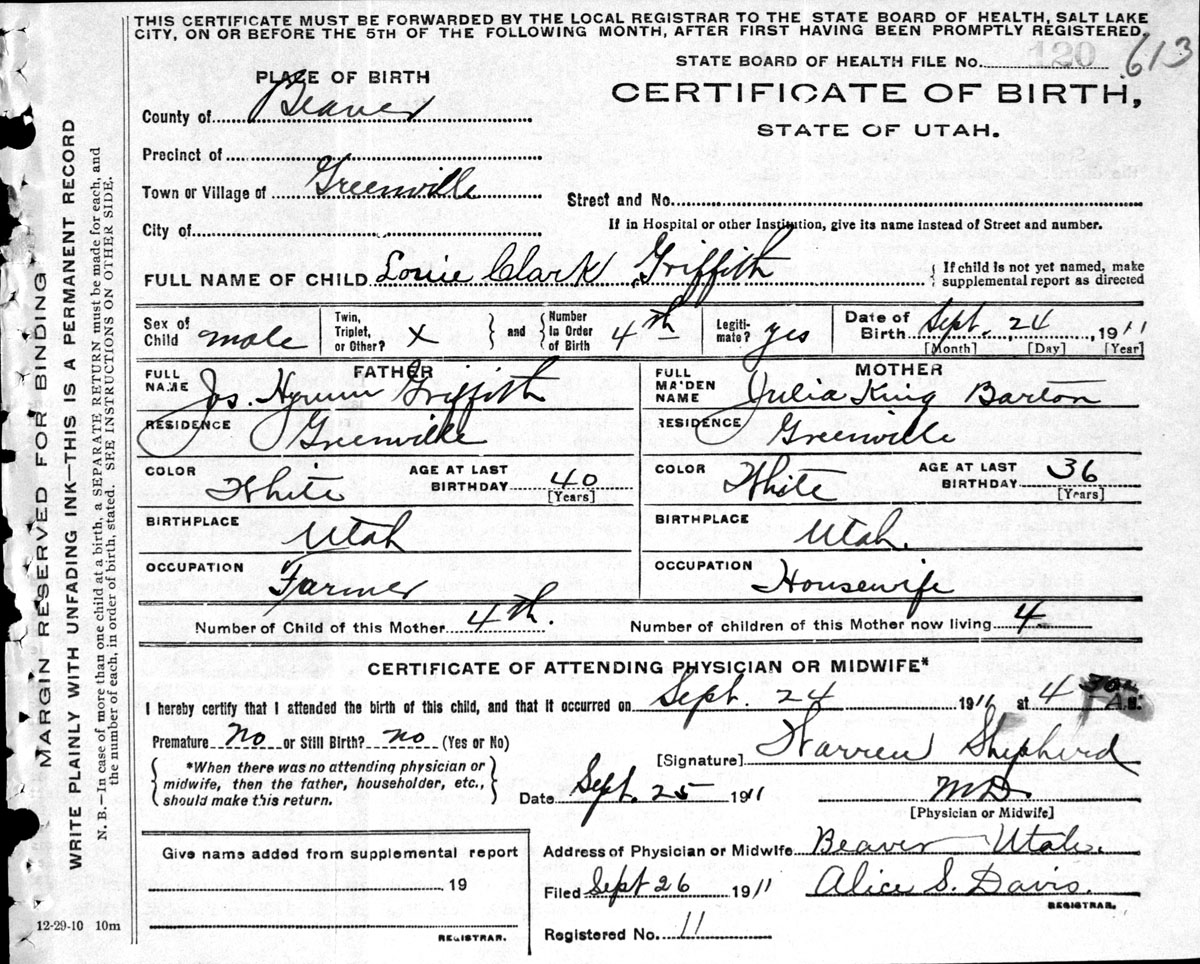 THIS CERTIFICATE MUST BE FORWARDED BY THE LOCAL REGISTRAR TO THE STATE BOARD OF HEALTH, SALT LAKE
CITY, ON OR BEFORE THE 5TH OF THE FOLLOWING MONTH, AFTER FIRST HAVING BEEN PROMPTLY REGISTERED.
STATE BOARD OF HEALTH FILE No. 120 613
PLACE OF BIRTH
CERTIFICATE OF BIRTH,
STATE OF UTAH.
County of Beaver
Precinct of
Town or Village of Greenville
Street and No.
City of
If in Hospital or other Institution, give its name instead of Street and number.
FULL NAME OF CHILD Louie Clark Griffith
If child is not yet named, make
supplemental report as directed
Sex of Child male
Twin, Triplet, or Other? X
and
Number in Order of Birth 4th
Legitimate? yes
Date of Birth Sept. 24, 1911
[Month] [Day] [Year]
FATHER
FULL NAME Jos. Hyrum Griffith
RESIDENCE Greenville
COLOR White
AGE AT LAST BIRTHDAY 40
[Years]
BIRTHPLACE Utah
OCCUPATION Farmer
MOTHER
FULL MAIDEN NAME Julia King Barton
RESIDENCE Greenville
COLOR White
AGE AT LAST BIRTHDAY 36
[Years]
BIRTHPLACE Utah.
OCCUPATION Housewife
Number of Child of this Mother 4th.
Number of children of this Mother now living 4
CERTIFICATE OF ATTENDING PHYSICIAN OR MIDWIFE*
I hereby certify that I attended the birth of this child, and that it occurred on Sept. 24 1911 at 4 A.M.
Premature No or Still Birth? No (Yes or No)
*When there was no attending physician or
midwife, then the father, householder, etc.,
should make this return.
[Signature] Warren Shepherd
M.D.
[Physician or Midwife]
Date Sept. 25 1911
Give name added from supplemental report
19
REGISTRAR.
Address of Physician or Midwife Beaver Utah.
Filed Sept 26 1911 Alice S. Davis.
REGISTRAR.
Registered No. 11
12-29-10 10m
MARGIN RESERVED FOR BINDING
WRITE PLAINLY WITH UNFADING INK—THIS IS A PERMANENT RECORD
N. B.—In case of more than one child at a birth, a SEPARATE RETURN must be made for each, and
the number of each, in order of birth, stated. SEE INSTRUCTIONS ON OTHER SIDE.